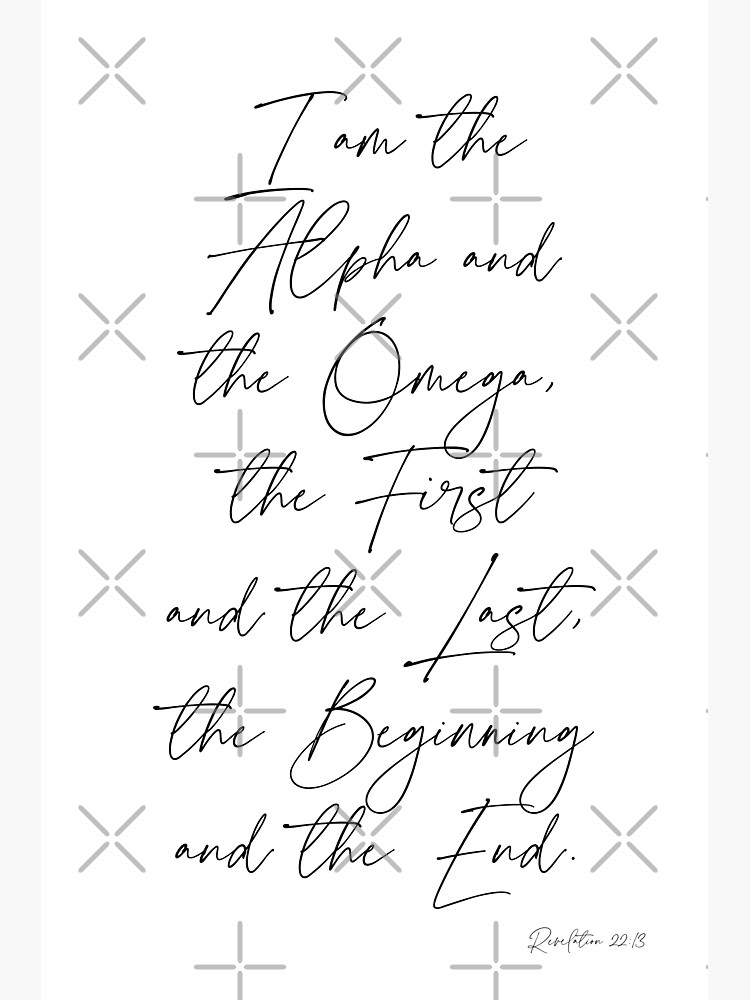 I am the
Alpha and
the Omega,
the First
and the Last,
the Beginning
and the End.
Revelation 22:13